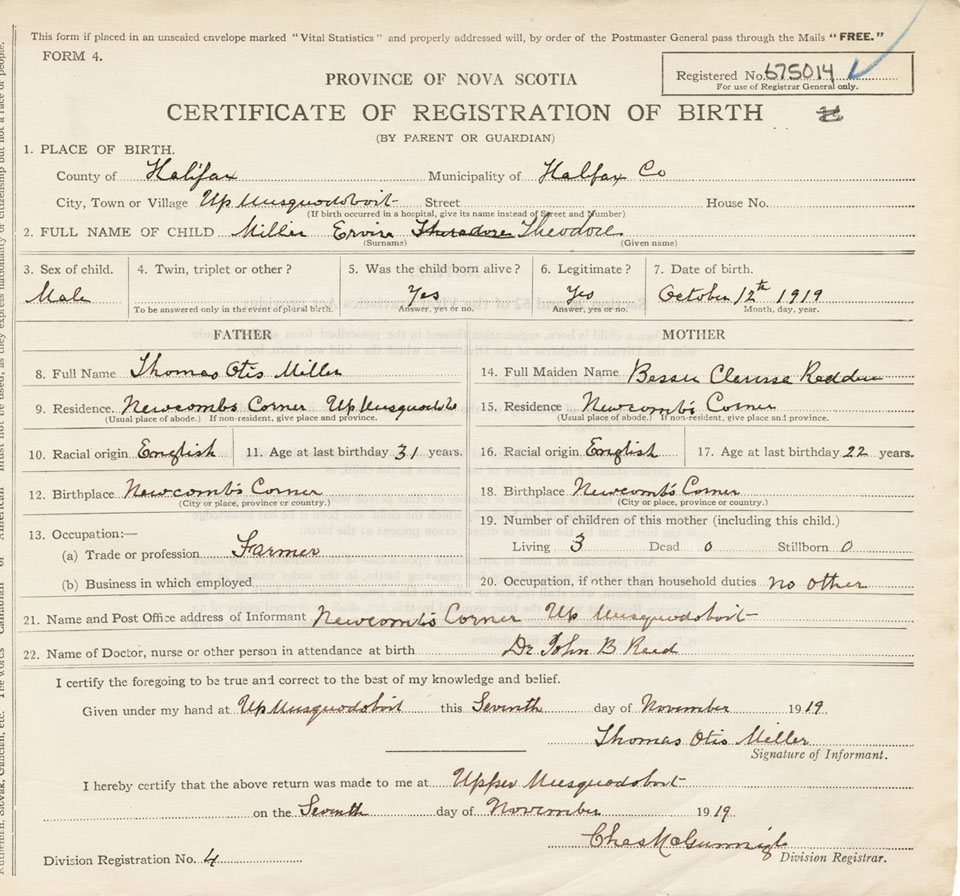 This form if placed in an unsealed envelope marked "Vital Statistics" and properly addressed will, by order of the Postmaster General pass through the Mails "FREE."
FORM 4.
Registered No. 675014
For use of Registrar General only.
PROVINCE OF NOVA SCOTIA
CERTIFICATE OF REGISTRATION OF BIRTH
(BY PARENT OR GUARDIAN)
1. PLACE OF BIRTH.
County of Halifax Municipality of Halifax Co
City, Town or Village Up Musquodoboit Street House No.
(If birth occurred in a hospital, give its name instead of Street and Number)
2. FULL NAME OF CHILD Miller Ervin Theodore
(Surname) (Given name)
3. Sex of child. 4. Twin, triplet or other? 5. Was the child born alive? 6. Legitimate? 7. Date of birth.
Male Yes Yes October 12th 1919
To be answered only in the event of plural birth. Answer, yes or no. Answer, yes or no. Month, day, year.
FATHER MOTHER
8. Full Name Thomas Otis Miller 14. Full Maiden Name Clarissa
9. Residence. Newcombs Corner Up Musquodo 15. Residence Newcomb's Corner
(Usual place of abode.) If non-resident, give place and province. (Usual place of abode.) If non-resident, give place and province.
10. Racial origin English 11. Age at last birthday 31 years. 16. Racial origin English 17. Age at last birthday 22 years.
12. Birthplace Newcomb's Corner 18. Birthplace Newcomb's Corner
(City or place, province or country.) (City or place, province or country.)
19. Number of children of this mother (including this child.)
13. Occupation:—
(a) Trade or profession Farmer Living 3 Dead 0 Stillborn 0
(b) Business in which employed 20. Occupation, if other than household duties no other
21. Name and Post Office address of Informant Newcomb's Corner Up Musquodoboit
22. Name of Doctor, nurse or other person in attendance at birth Dr John B Reed
I certify the foregoing to be true and correct to the best of my knowledge and belief.
Given under my hand at Up Musquodoboit this Seventh day of November 1919
Thomas Otis Miller
Signature of Informant.
I hereby certify that the above return was made to me at Upper Musquodoboit
on the Seventh day of November 1919
Chas
Division Registrar.
Division Registration No. 4